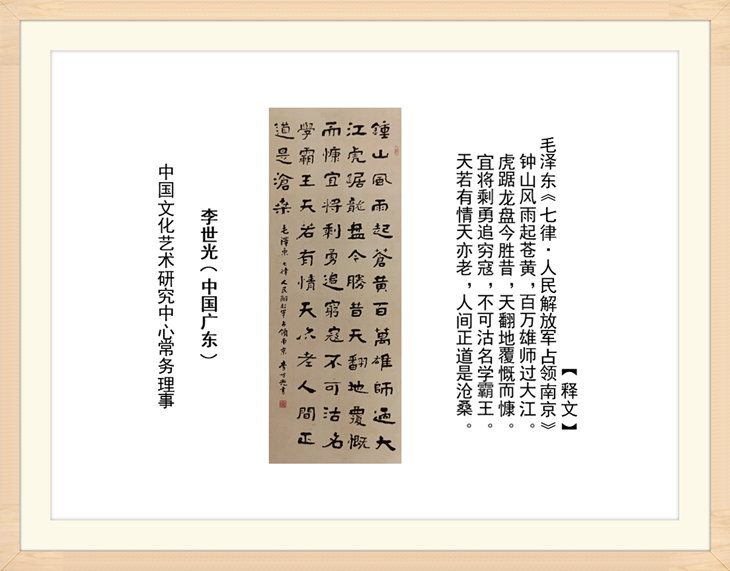 【释文】
毛泽东《七律·人民解放军占领南京》
钟山风雨起苍黄，百万雄师过大江。
虎踞龙盘今胜昔，天翻地覆慨而慷。
宜将剩勇追穷寇，不可沽名学霸王。
天若有情天亦老，人间正道是沧桑。
鍾山風雨起蒼黄百萬雄師過大
江虎踞龍盘今勝昔天翻地覆慨
而慷宜将剩勇追窮寇不可沽名
學霸王天若有情天亦老人間正
道是滄桑 毛澤東七律人民解放軍占領南京 李世光書
李世光（中国广东）
中国文化艺术研究中心常务理事